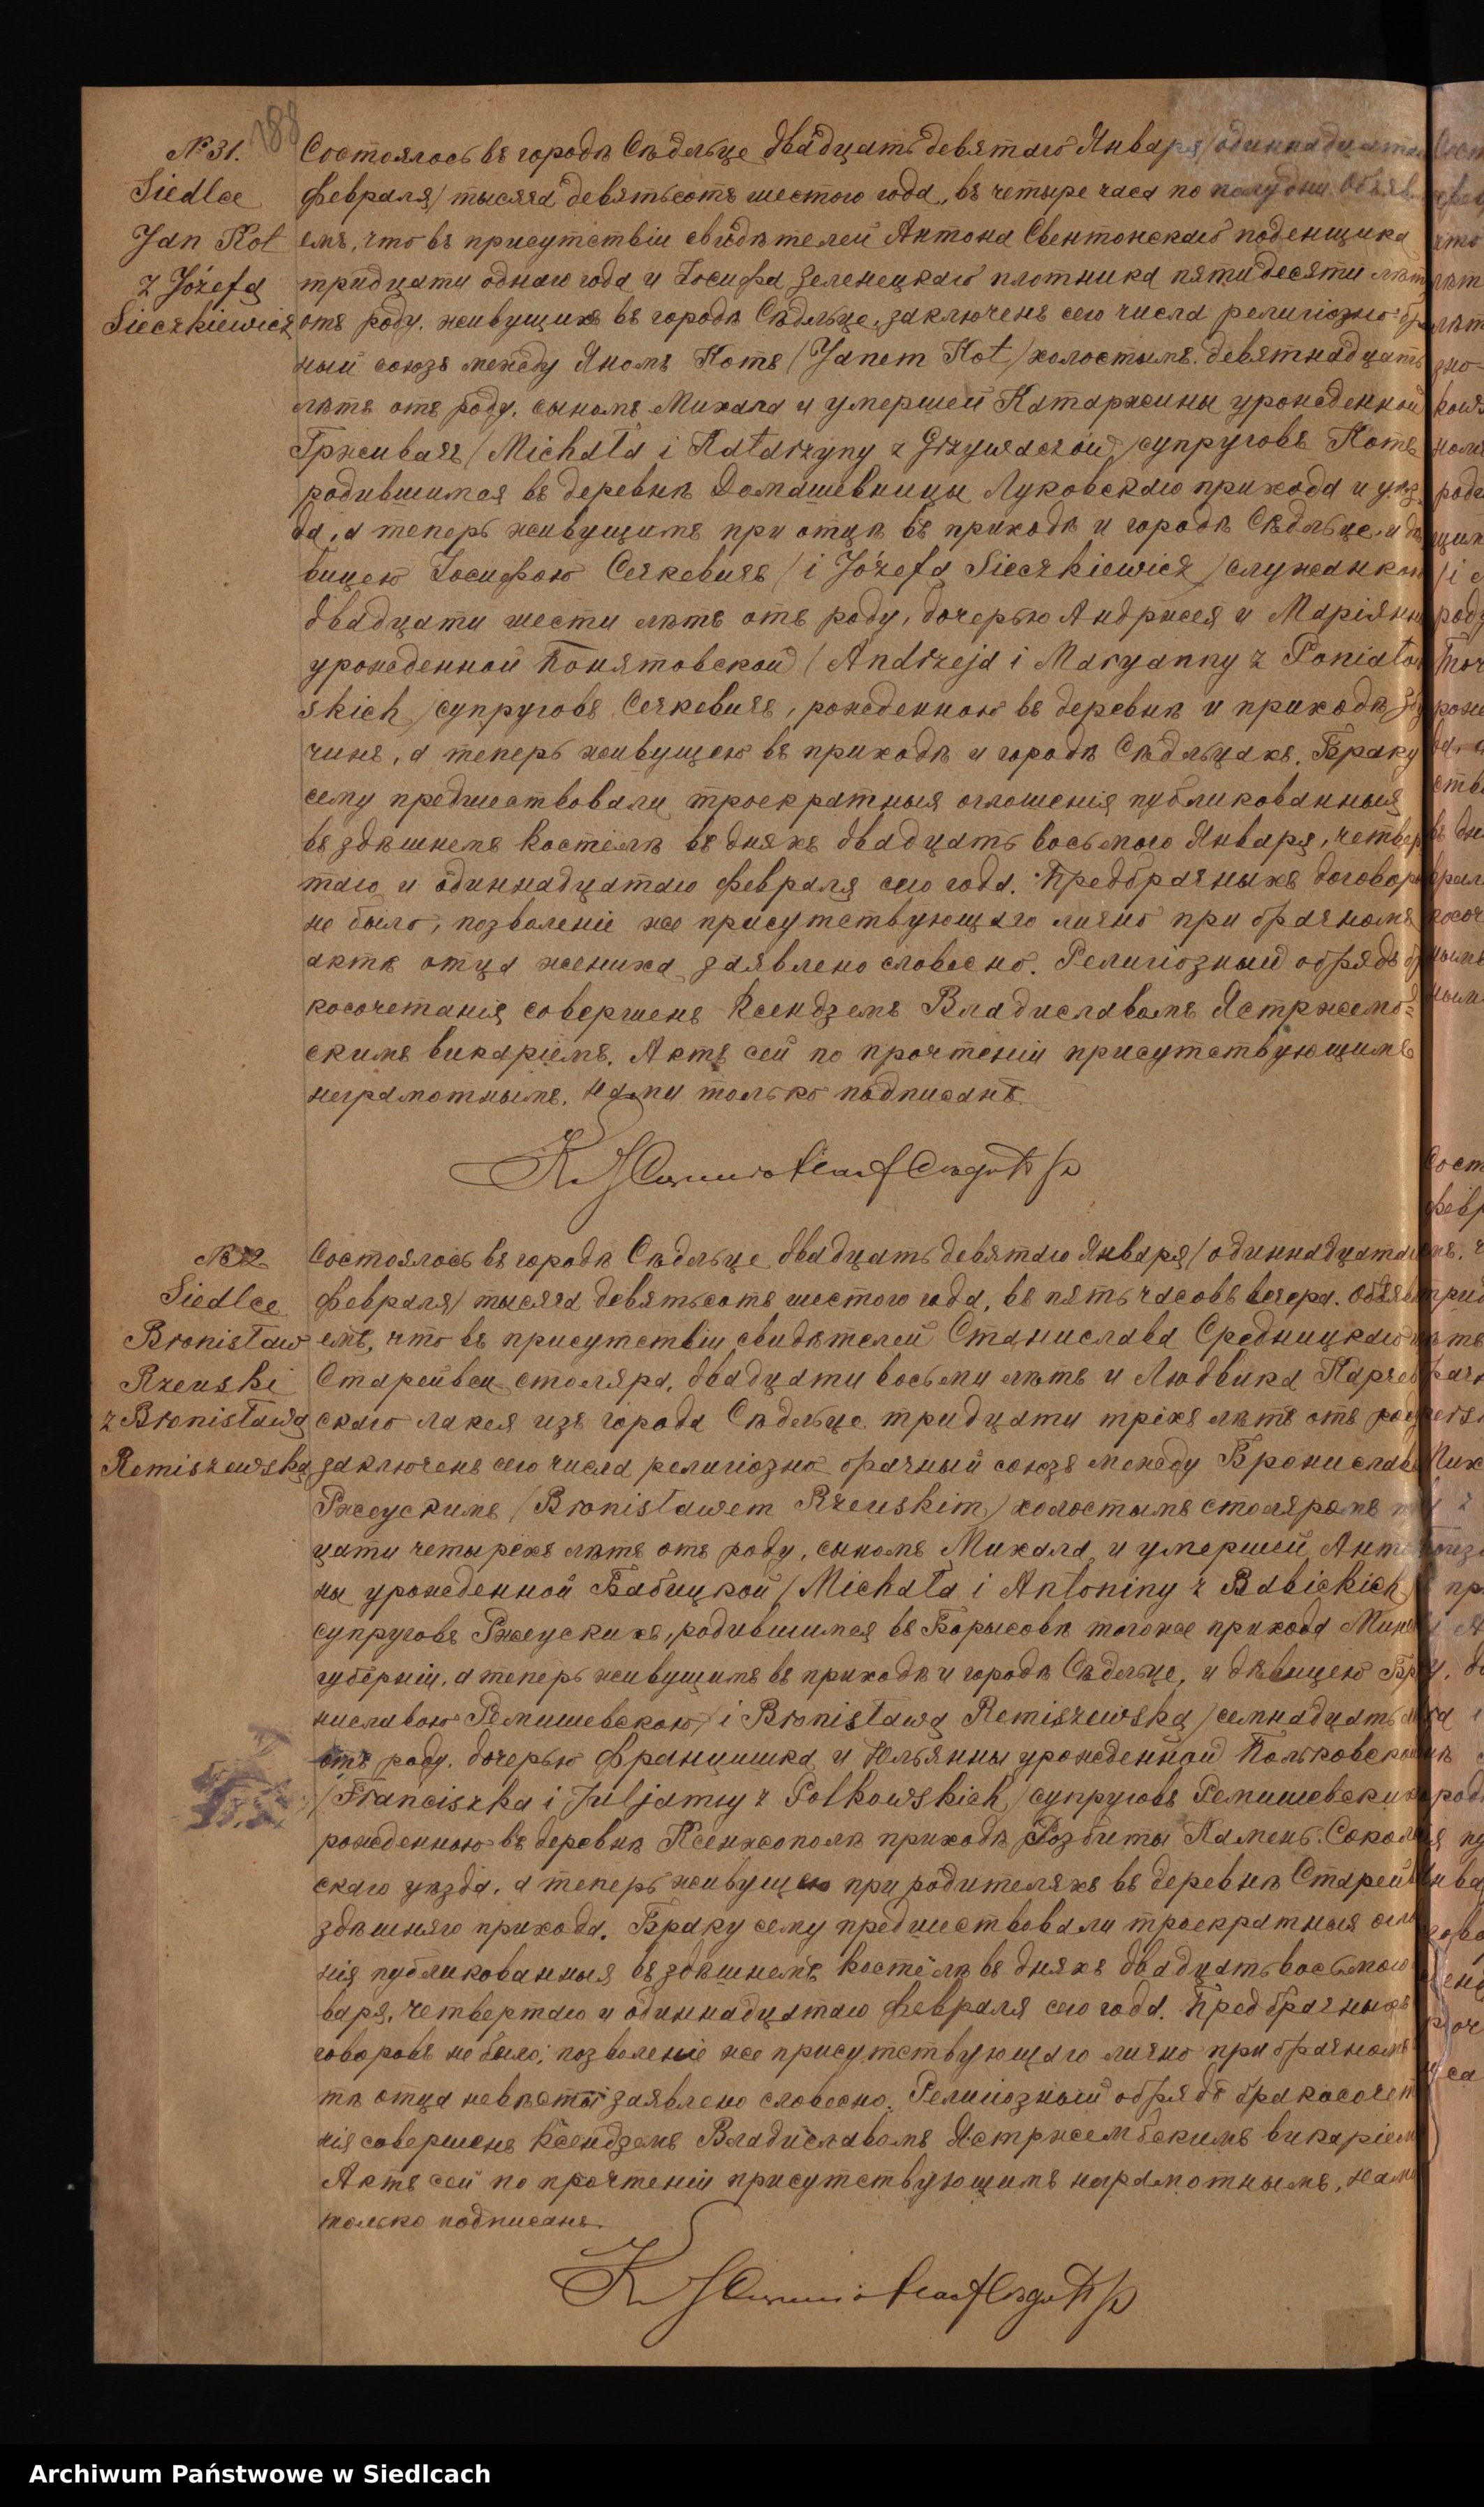 188
№ 31.
Siedlce
Jan Kot
z Józefą
Sieczkiewicz
Состоялось въ городѣ Сѣдльце двадцать девятаго Января /одиннадцатаго
Февраля/ тысяча девятьсотъ шестого года, въ четыре часа по полудни. Объявля-
емъ, что въ присутствіи свидѣтелей Антона Свентонскаго поденщика
тридцати однаго года и Іосифа Зеленецкаго плотника пятидесяти лѣтъ
отъ роду, живущихъ въ городѣ Сѣдльце, заключенъ сего числа религіозно-бра
ный союзъ между Яномъ Котъ /Janem Kot/ холостымъ, девятнадцать
лѣтъ отъ роду, сыномъ Михала и умершей Катаржины урожденной
Грживачъ /Michała i Katarzyny z Grzywaczów/ супруговъ Котъ
родившимся въ деревнѣ Домашевницы Луковскаго прихода и уѣз
да, а теперь живущимъ при отцѣ въ приходѣ и городѣ Сѣдльце, и дѣ
вицею Іосифою Сечкевичъ /i Józefą Sieczkiewicz/ служанкою
двадцати шести лѣтъ отъ роду, дочерью Андржея и Маріянны
урожденной Понятовской /Andrzeja i Maryanny z Poniatow
skich/ супруговъ Сечкевичъ, рожденною въ деревнѣ и приходѣ Збу
чинъ, а теперь живущею въ приходѣ и городѣ Сѣдльцахъ. Браку
сему предшествовали троекратныя оглошенія публикованныя
въ здѣшнемъ костёлѣ въ дняхъ двадцать восьмого Января, четвер
таго и одиннадцатаго Февраля сего года. Предбрачныхъ договоро
не было, позволеніе же присутствующаго лично при брачномъ
актѣ отца жениха заявлено словесно. Религіозный обрядъ бр
косочетанія совершенъ Ксендземъ Владиславомъ Ястржемб-
скимъ викаріемъ. Актъ сей по прочтеніи присутствующимъ
неграмотнымъ, нами только подписанъ.
№ 32
Siedlce
Bronisław
Rzeuski
z Bronisławą
Remiszewską
Состоялось въ городѣ Сѣдльце двадцать девятаго Января /одиннадцатаго
Февраля/ тысяча девятьсотъ шестого года, въ пять часовъ вечера. Объявля
емъ, что въ присутствіи свидѣтелей Станислава Средницкаго
Старейвси столяра, двадцати восьми лѣтъ и Людвика Карчев
скаго лакея изъ города Сѣдльце тридцати трёхъ лѣтъ отъ роду
заключенъ сего числа религіозно брачный союзъ между Брониславо
Ржеускимъ /Bronisławem Rzeuskim/ холостымъ столяромъ
цати четырехъ лѣтъ отъ роду, сыномъ Михала и умершей Анто
ны урожденной Бабицкой /Michała i Antoniny z Babickich/
супруговъ Ржеускихъ, родившимся въ Борысовѣ тогоже прихода Минс
губерніи, а теперь живущимъ въ приходѣ и городѣ Сѣдльце, и дѣвицею Бр
ниславою Ремишевскою /i Bronisławą Remiszewską/ семнадцать
отъ роду, дочерью Францишка и Юльянны урожденной Польковской
/Franciszka i Juljanny z Polkowskich/ супруговъ Ремишевскихъ
рожденною въ деревнѣ Ксенжополѣ приходѣ Розбиты Камень Соколо
скаго уѣзда, а теперь живущею при родителяхъ въ деревнѣ Старейв
здѣшняго прихода. Браку сему предшествовали троекратныя огло
нія публикованныя въ здѣшнемъ костёлѣ въ дняхъ двадцать восьмого
варя, четвертаго и одиннадцатаго Февраля сего года. Предбрачныхъ
говоровъ не было; позволеніе же присутствующаго лично при брачномъ
тѣ отца невѣсты заявлено словесно. Религіозный обрядъ бракосочет
нія совершенъ Ксендземъ Владиславомъ Ястржембскимъ викаріем
Актъ сей по прочтеніи присутствующимъ неграмотнымъ, нами
только подписанъ.
Archiwum Państwowe w Siedlcach